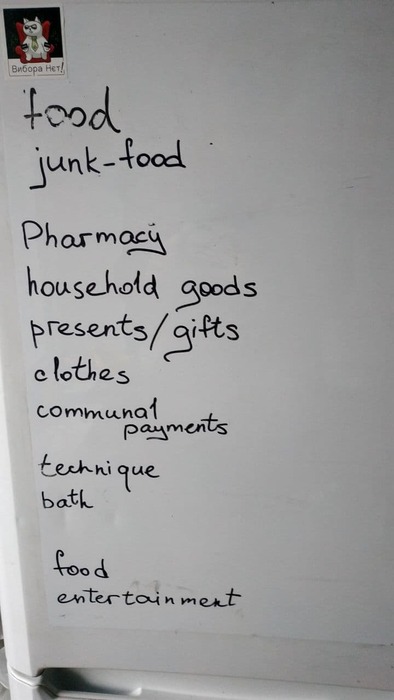 Вибора Нет!
food
junk-food
Pharmacy
household goods
presents/gifts
clothes
communal
payments
technique
bath
food
entertainment